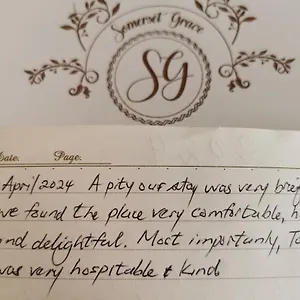 Somerset Grace
SG
Date: Page:
April/2024 A pity our stay was very brief
we found the place very comfortable,
and delightful. Most importantly,
was very hospitable & kind